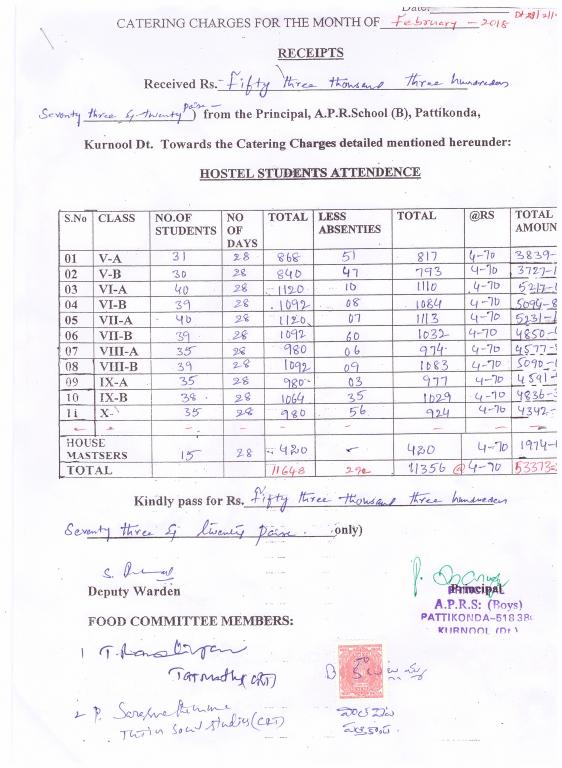 CATERING CHARGES FOR THE MONTH OF February - 2018
RECEIPTS
Received Rs. Fifty three thousand three hundredes
Seventy three & twenty paise) from the Principal, A.P.R.School (B), Pattikonda,
Kurnool Dt. Towards the Catering Charges detailed mentioned hereunder:
HOSTEL STUDENTS ATTENDENCE
S.No CLASS NO.OF STUDENTS NO OF DAYS TOTAL LESS ABSENTIES TOTAL @RS TOTAL AMOUN
01 V-A 31 28 868 51 817 4-70 3839-
02 V-B 30 28 840 47 793 4-70 3727-1
03 VI-A 40 28 1120 10 1110 4-70 5217-
04 VI-B 39 28 1092 08 1084 4-70 5094-8
05 VII-A 40 28 1120 07 1113 4-70 5231-1
06 VII-B 39 28 1092 60 1032 4-70 4850-
07 VIII-A 35 28 980 06 974 4-70 4577-
08 VIII-B 39 28 1092 09 1083 4-70 5090-1
09 IX-A 35 28 980 03 977 4-70 4591-
10 IX-B 38 28 1064 35 1029 4-70 4836-3
11 X 35 28 980 56 924 4-70 4342-
HOUSE MASTSERS 15 28 420 - 420 4-70 1974-
TOTAL 11648 292 11356 @ 4-70 53373-
Kindly pass for Rs. Fifty three thousand three hundredes
Seventy three & twenty paise. only)
Deputy Warden
Principal
A.P.R.S: (Boys)
PATTIKONDA-518 38
KURNOOL (Dt.)
FOOD COMMITTEE MEMBERS:
1
2 P.